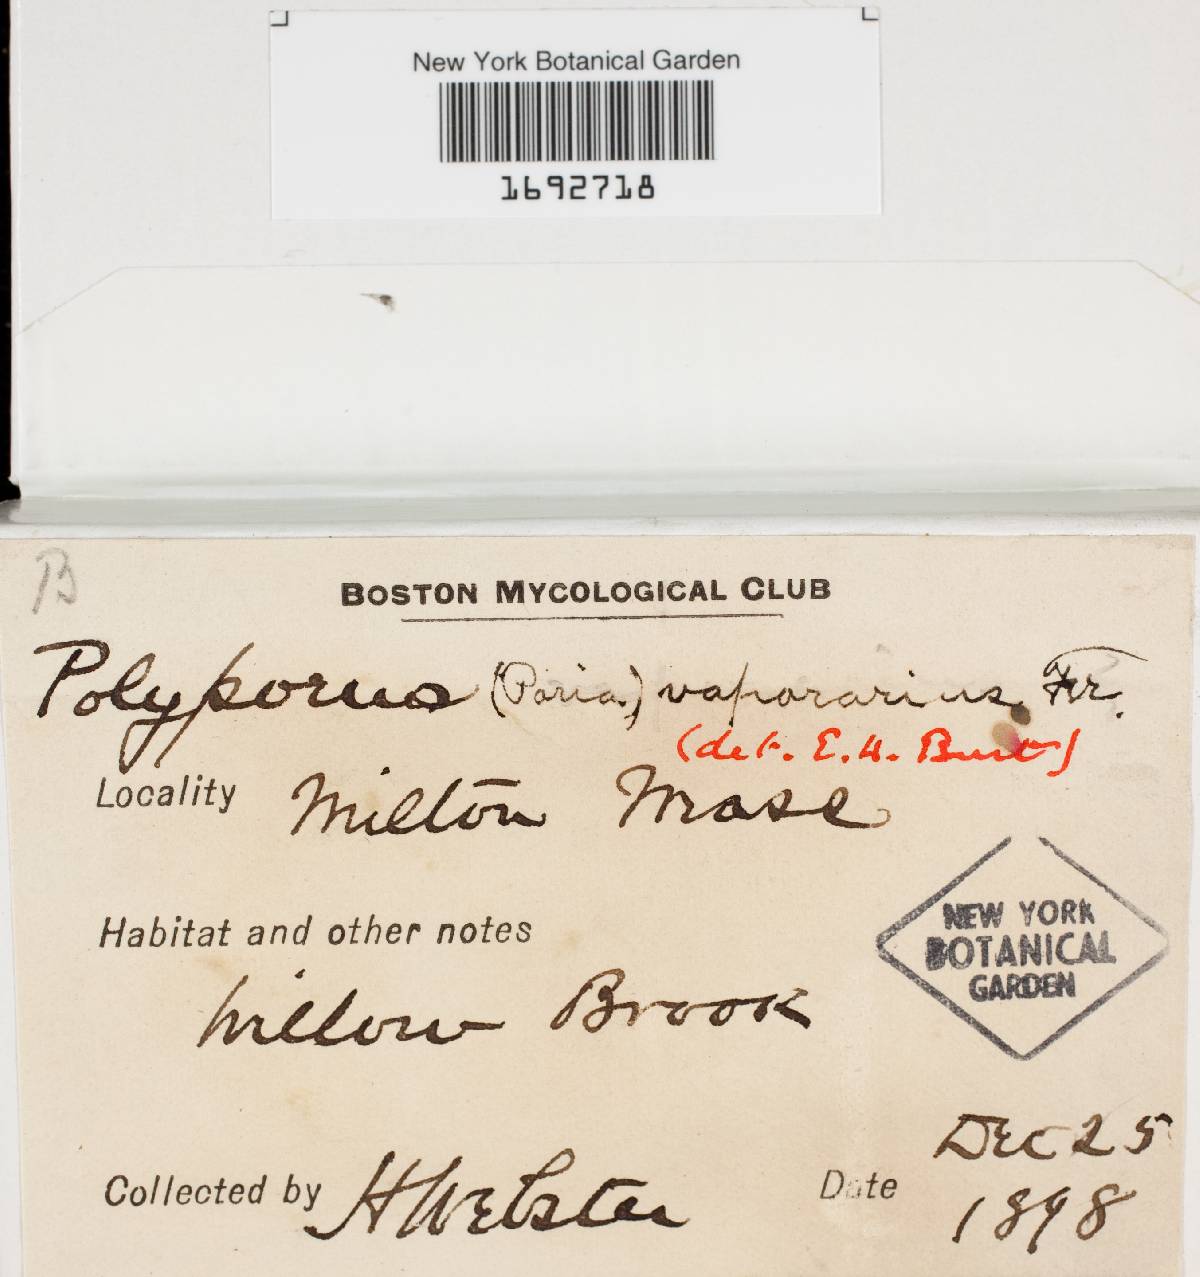 New York Botanical Garden
1692718
B
BOSTON MYCOLOGICAL CLUB
Polyporus (Poria) vaporarius Fr.
(det. E.A. Burt)
Locality Milton Mass
Habitat and other notes
NEW YORK
BOTANICAL
GARDEN
Willow Brook
Collected by H Webster Date Dec 25
1898